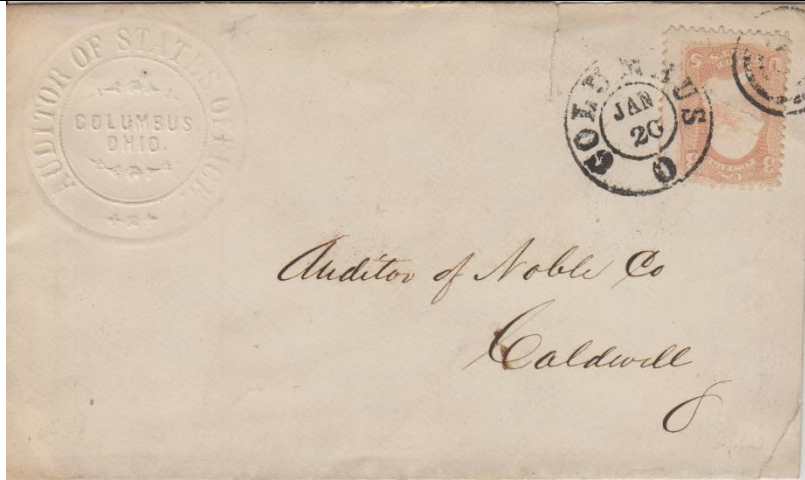 AUDITOR OF STATES OFFICE.
COLUMBUS
OHIO.
COLUMBUS O
JAN
20
3 3
Auditor of Noble Co
Caldwell
O